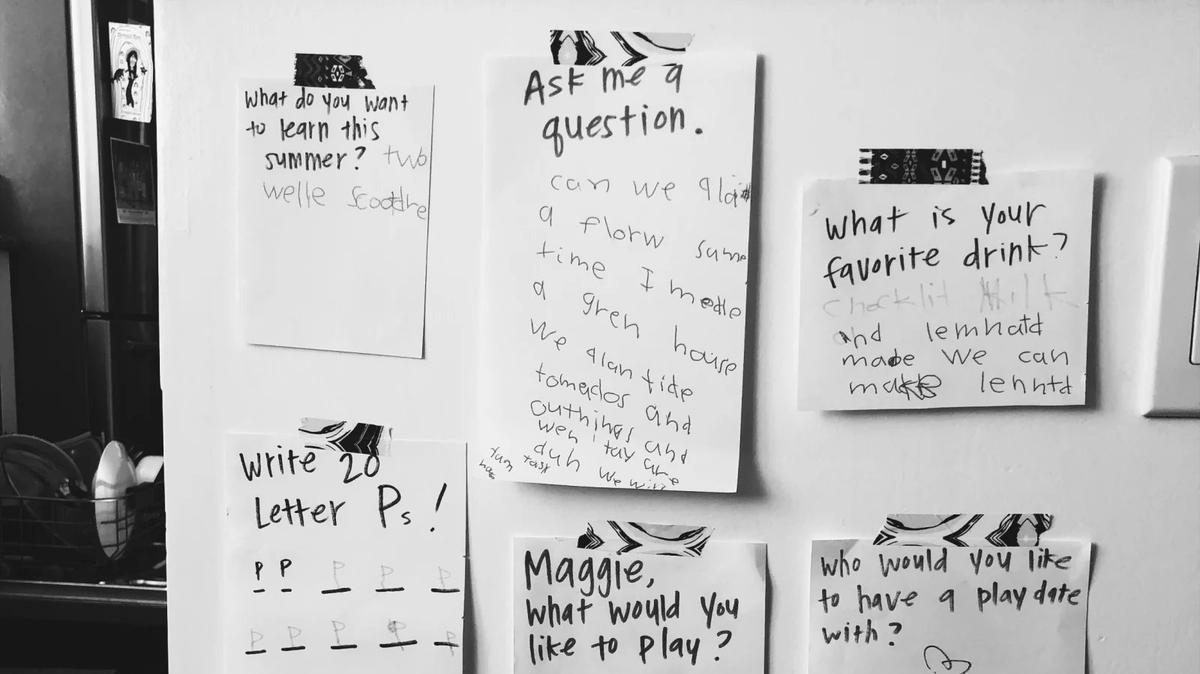 What do you want
to learn this
summer? two
welle scootdre
Ask me a
question.
can we
a florw sume
time I made
a gren house
we alan tide
tomados and
outhings and
weh i tay are
duh we will
tum task
What is your
favorite drink?
Chocklit Milk
and lemnatd
made we can
make lenntd
Write 20
Letter Ps!
P P P P P
P P P P P
Maggie,
what would you
like to play?
Who would you like
to have a play date
with?